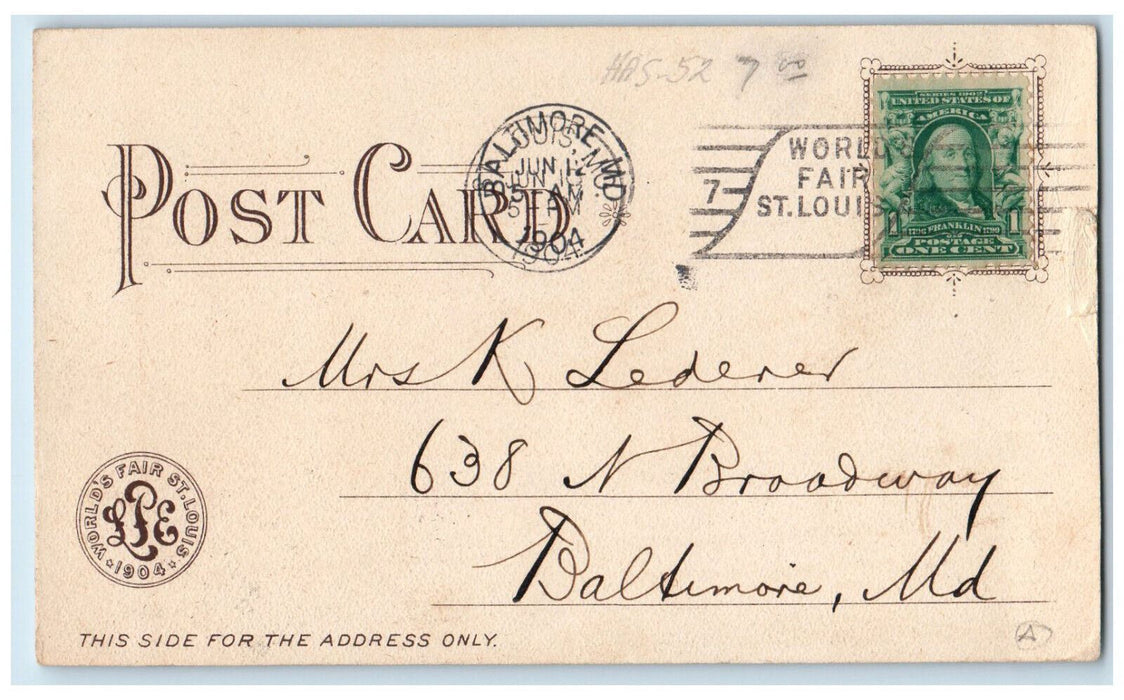 HAS-52 7 00
SERIES 1902
UNITED STATES OF
AMERICA
1706 FRANKLIN 1790
1 1
POSTAGE
ONE CENT
WORLD'S
FAIR
ST. LOUIS
7
BALTIMORE, MD.
JUN 12
5 AM
1904
LOUIS, MO.
1904
POST CARD
Mrs K Lederer
638 N Broadway
Baltimore, Md
WORLD'S FAIR ST. LOUIS
LPE
★1904★
THIS SIDE FOR THE ADDRESS ONLY.
A